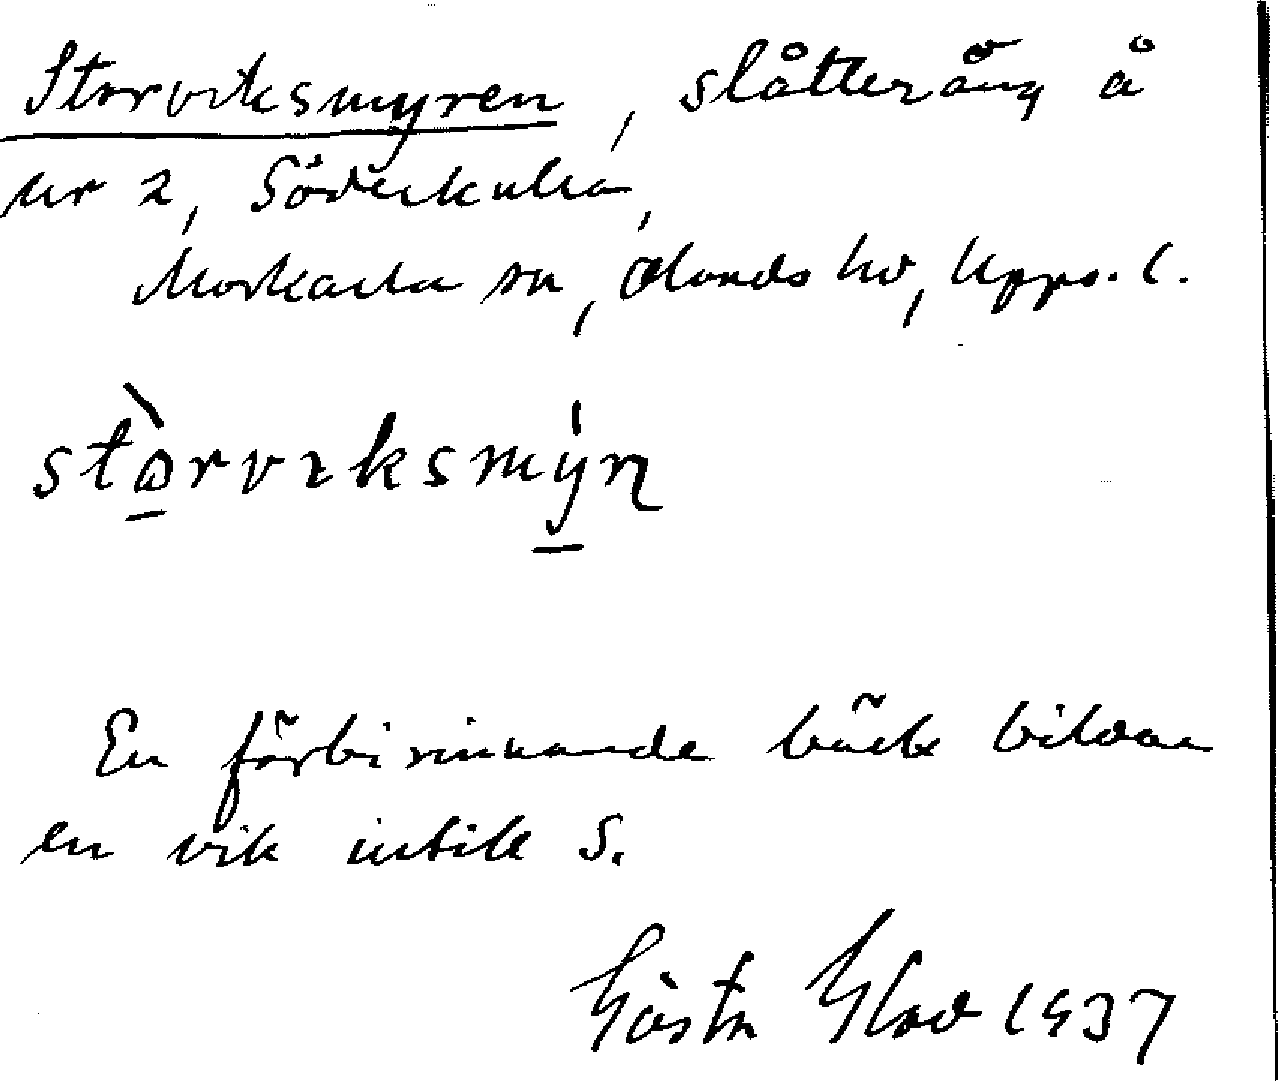 Storviksmyren, slåtteräng å
nr 2, Söderkulla,
Morkarla sn, Olands hd, Upps. l.
stòrvıksmy̍n
En förbirinnande bäck bildar
en vik intill S.
Gösta 1937